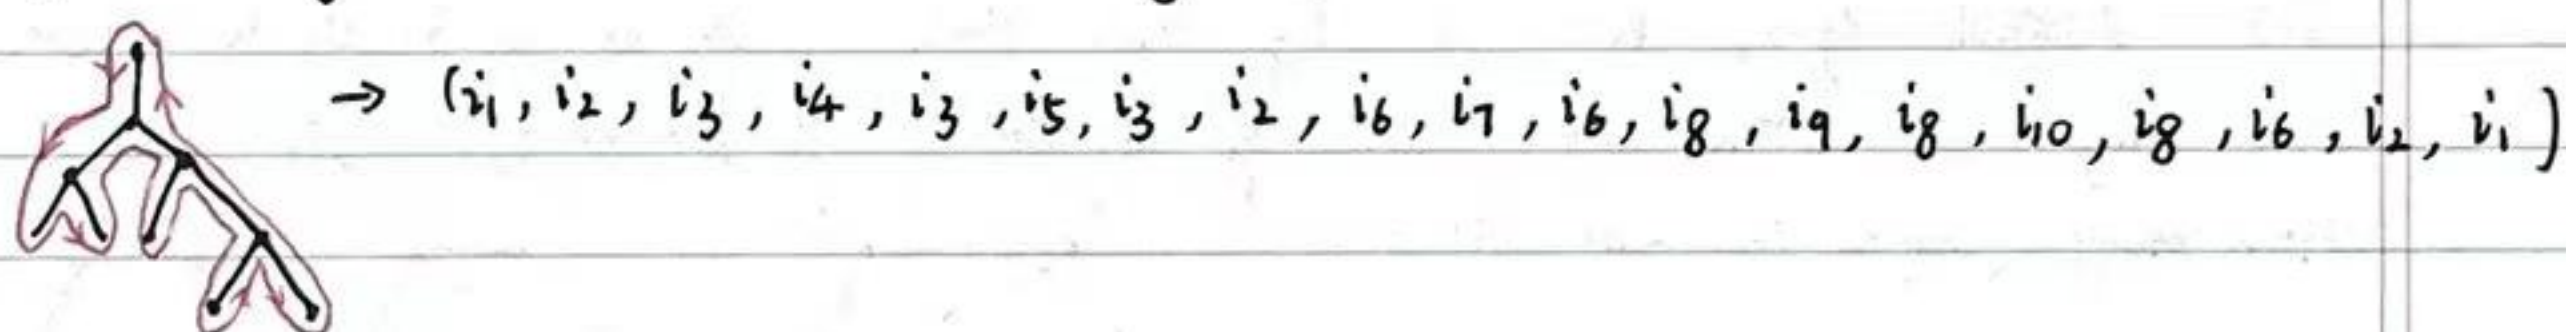 → (i₁, i₂, i₃, i₄, i₃, i₅, i₃, i₂, i₆, i₇, i₆, i₈, i₉, i₈, i₁₀, i₈, i₆, i₂, i₁)